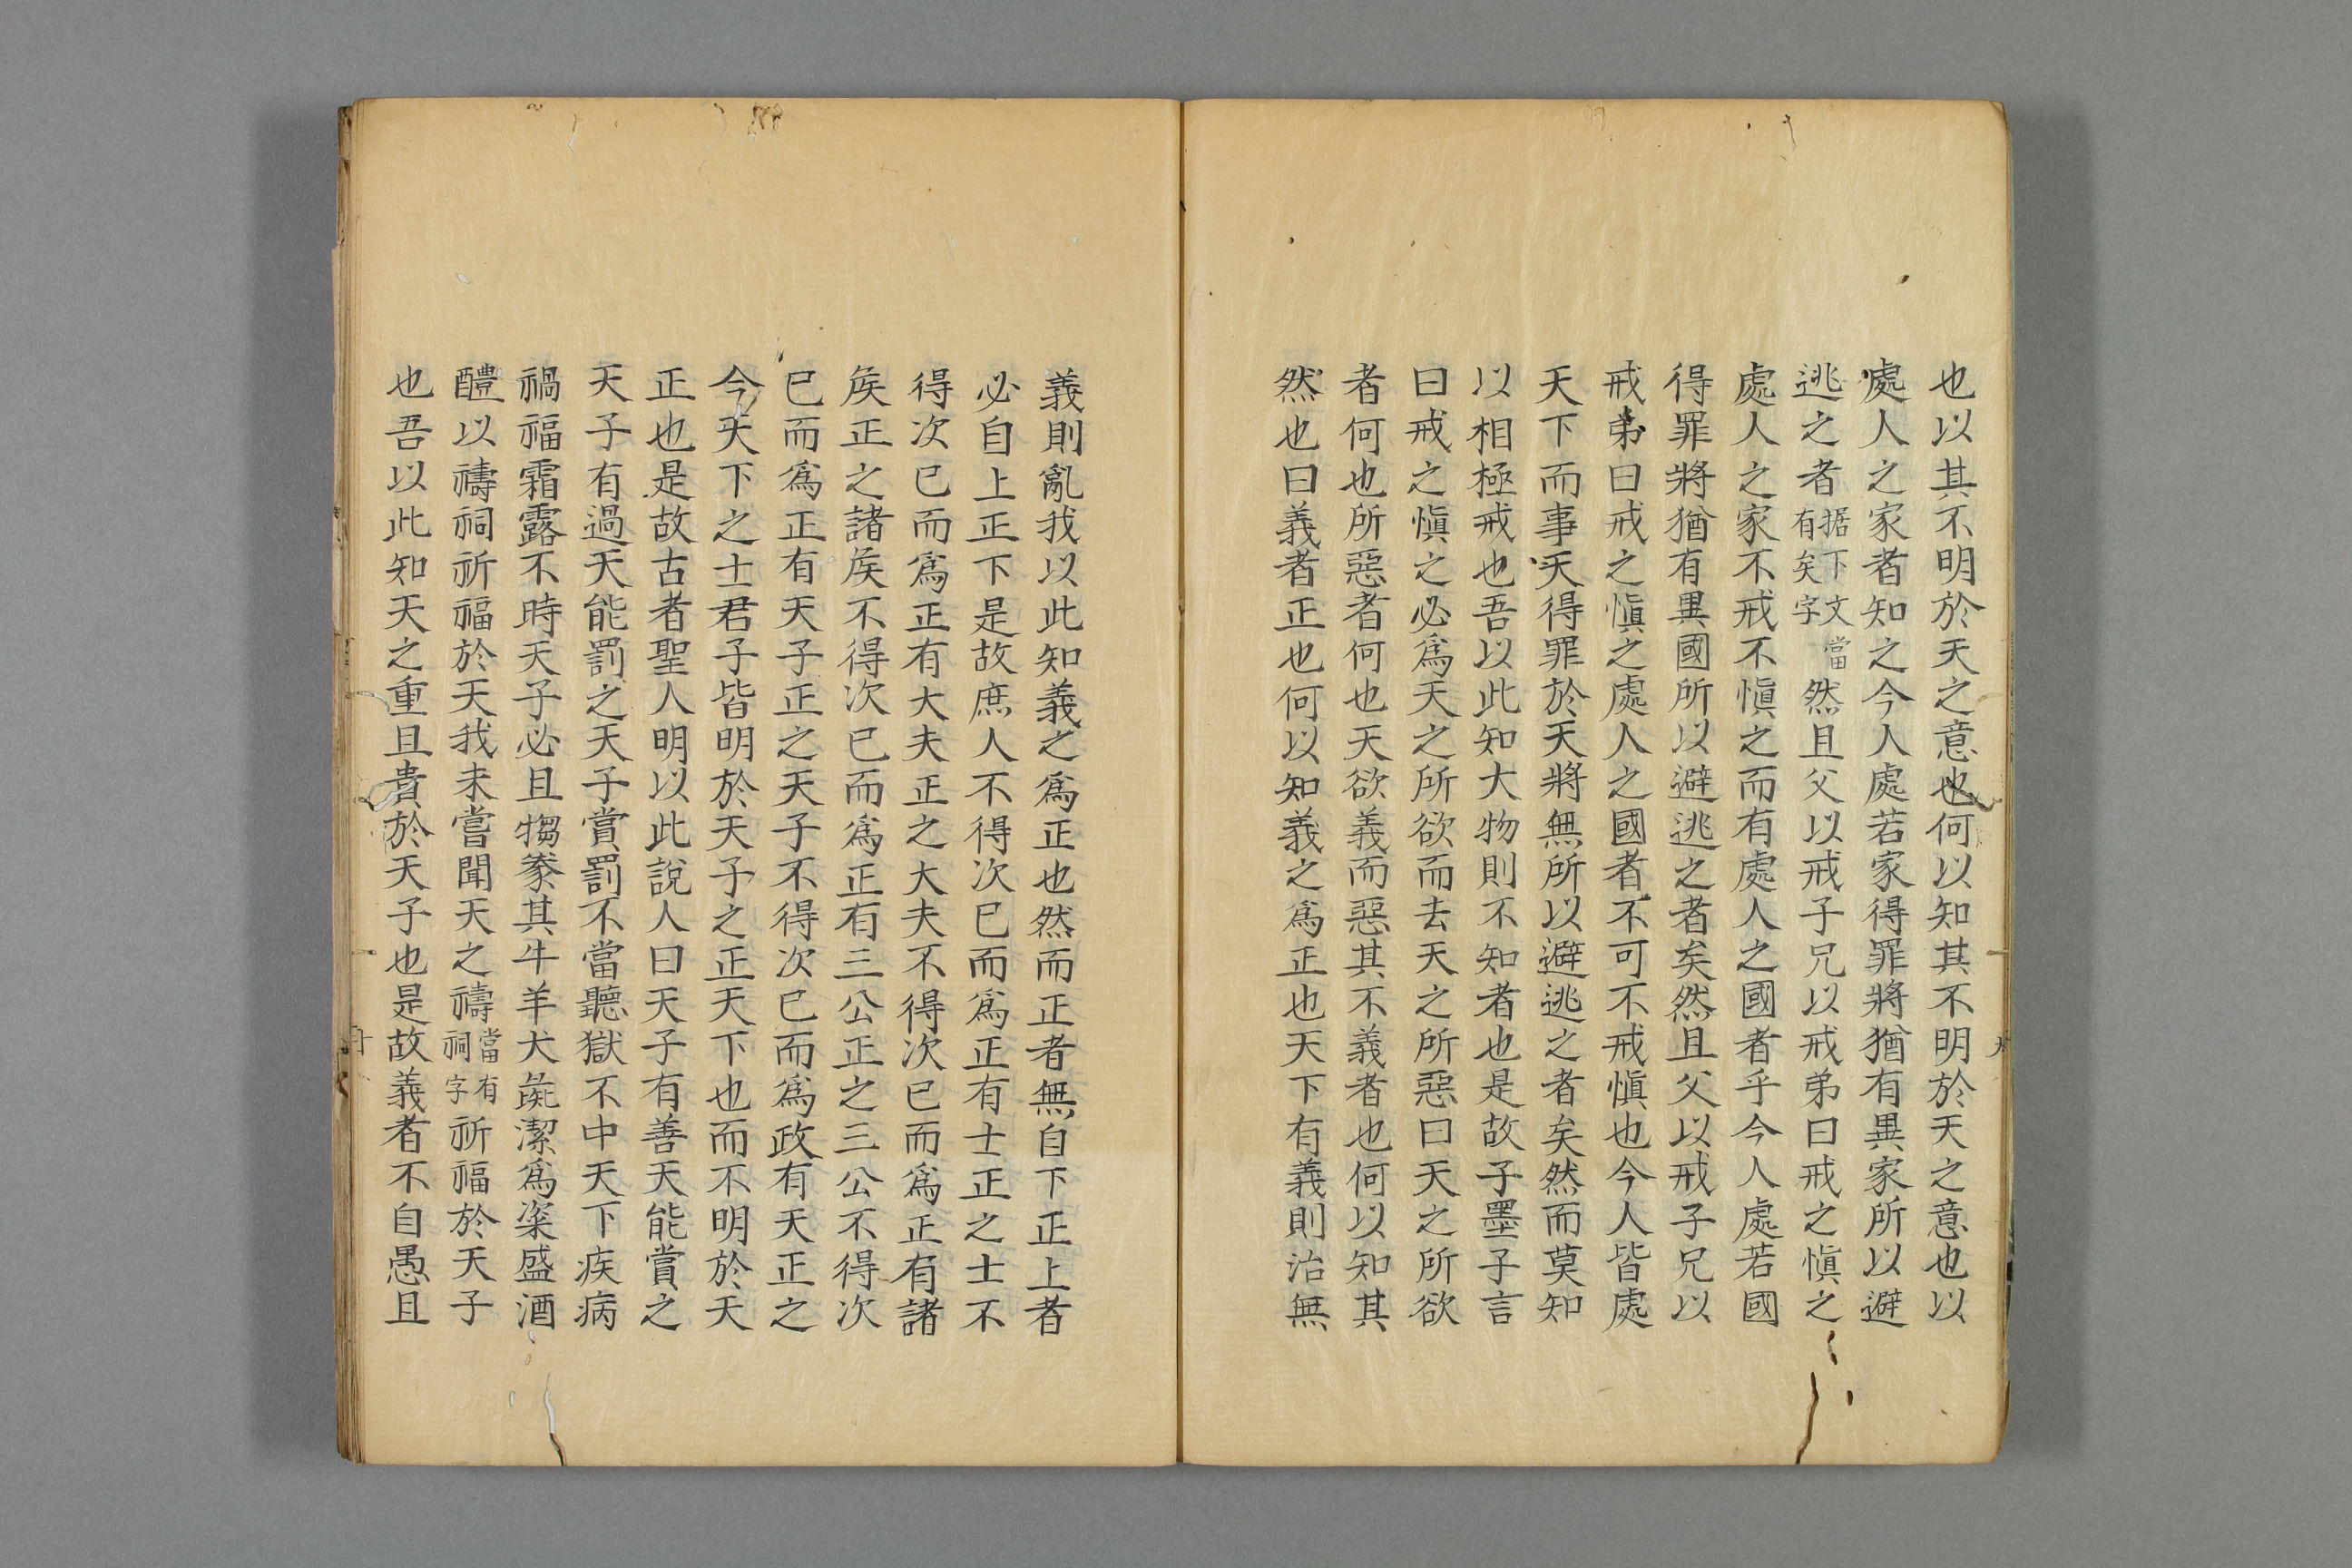 也以其不明於天之意也何以知其不明於天之意也以
處人之家者知之今人處若家得罪將猶有異家所以避
逃之者据下文當有矣字然且父以戒子兄以戒弟曰戒之愼之
處人之家不戒不愼之而有處人之國者乎今人處若國
得罪將猶有異國所以避逃之者矣然且父以戒子兄以
戒弟曰戒之愼之處人之國者不可不戒愼也今人皆處
天下而事天得罪於天將無所以避逃之者矣然而莫知
以相極戒也吾以此知大物則不知者也是故子墨子言
曰戒之愼之必爲天之所欲而去天之所惡曰天之所欲
者何也所惡者何也天欲義而惡其不義者也何以知其
然也曰義者正也何以知義之爲正也天下有義則治無
義則亂我以此知義之爲正也然而正者無自下正上者
必自上正下是故庶人不得次已而爲正有士正之士不
得次已而爲正有大夫正之大夫不得次已而爲正有諸
矦正之諸矦不得次已而爲正有三公正之三公不得次
已而爲正有天子正之天子不得次已而爲政有天正之
今天下之士君子皆明於天子之正天下也而不明於天
正也是故古者聖人明以此說人曰天子有善天能賞之
天子有過天能罰之天子賞罰不當聽獄不中天下疾病
禍福霜露不時天子必且犓豢其牛羊犬彘潔爲粢盛酒
醴以禱祠祈福於天我未嘗聞天之禱當有祠字祈福於天子
也吾以此知天之重且貴於天子也是故義者不自愚且